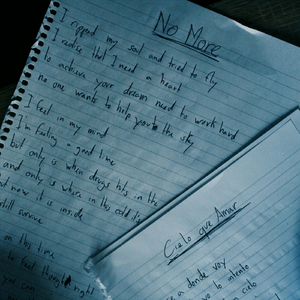 No More
I ripped my soul and tried to fly
I realise that I need a heart
to achieve your dream need to work hard
no one wants to help you the sky
I feel in my mind
I'm feeling a good time
but only is when drugs hits in the
and only is when in this cold
but now it is inside
still survive
on this time
to feel right
you can
Cielo que Amar
a donde voy
lo intento
cielo